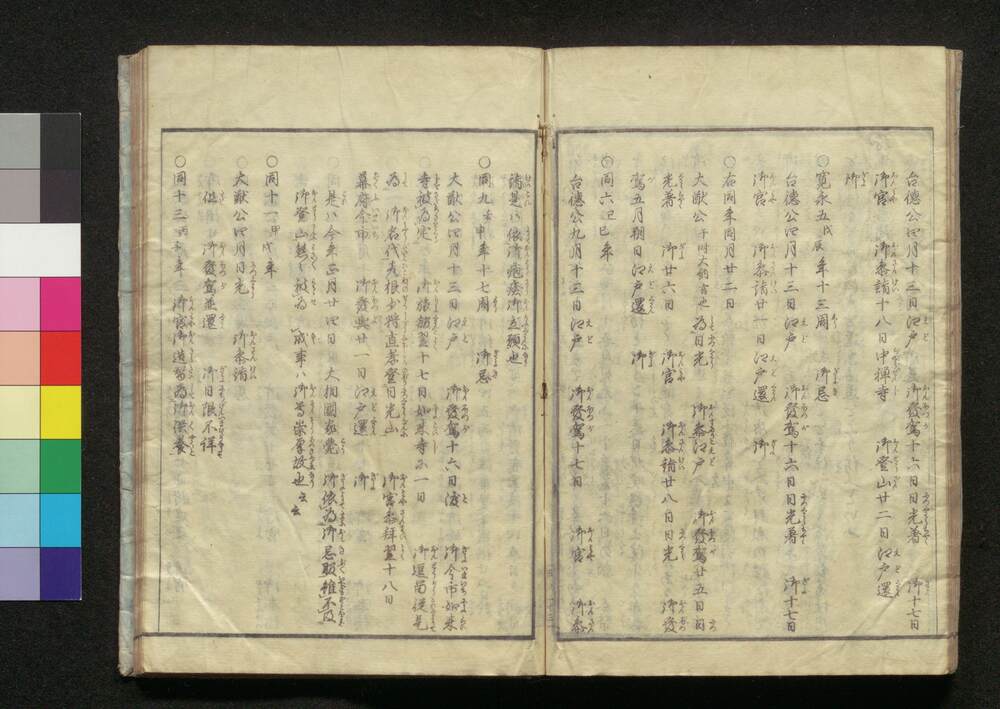 台徳公四月十三日江戸　御發駕十六日日光著　御十七日
御宮　御参詣十八日中禅寺　御登山廿二日江戸還
御
○寛永五戊辰年十三周　御忌
台徳公四月十三日江戸　御發駕十六日日光著　御十七日
御宮　御参詣廿一日江戸還　御
○右同年同月廿二日
大猷公于時大納言也為日光　御参江戸　御發駕廿五日日
光著　御廿六日　御宮　御参詣廿八日日光　御發
駕五月朔日江戸還　御
○同六己巳年
台徳公九月十三日江戸　御發駕十七日　御宮　御参
詣是ハ依済疱瘡御立願也
○同九壬申年十七周　御忌
大猷公四月十三日江戸　御發駕十六日渡　御今市如来
寺被為定　御旅館翌十七日如来寺二日　御逗留従是
為　御名代井伊少将直孝登日光山　御宮参拝翌十八日
幕府今市　御發輿廿一日江戸還　御
是ハ今年正月廿四日大相國薨　御依為御忌服雖不及
御登山態被為　成事ハ御尊崇厚故也云云
○同十一甲戌年
大猷公四月日光　御参詣
但　御發駕並還　御日限不詳
○同十三丙子年　御宮御造営為御供養